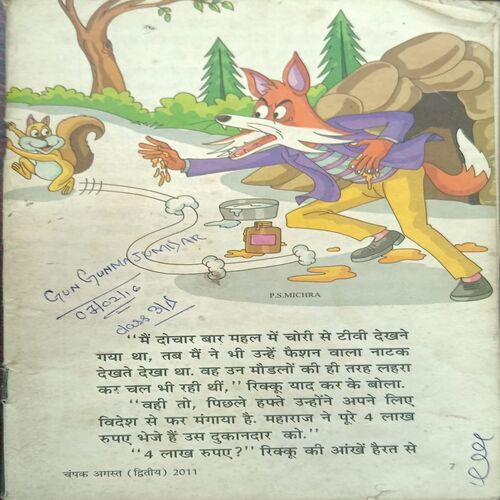 GUN GUNMAJUMDAR
07/02/16
class 2/A
P.S.MICHRA
‘‘मैं दोचार बार महल में चोरी से टीवी देखने
गया था, तब मैं ने भी उन्हें फैशन वाला नाटक
देखते देखा था. वह उन मौडलों की ही तरह लहरा
कर चल भी रही थीं,’’ रिक्कू याद कर के बोला.
‘‘वही तो, पिछले हफ्ते उन्होंने अपने लिए
विदेश से फर मंगाया है. महाराज ने पूरे 4 लाख
रुपए भेजे हैं उस दुकानदार को.’’
‘‘4 लाख रुपए?’’ रिक्कू की आंखें हैरत से
चंपक अगस्त (द्वितीय) 2011
7